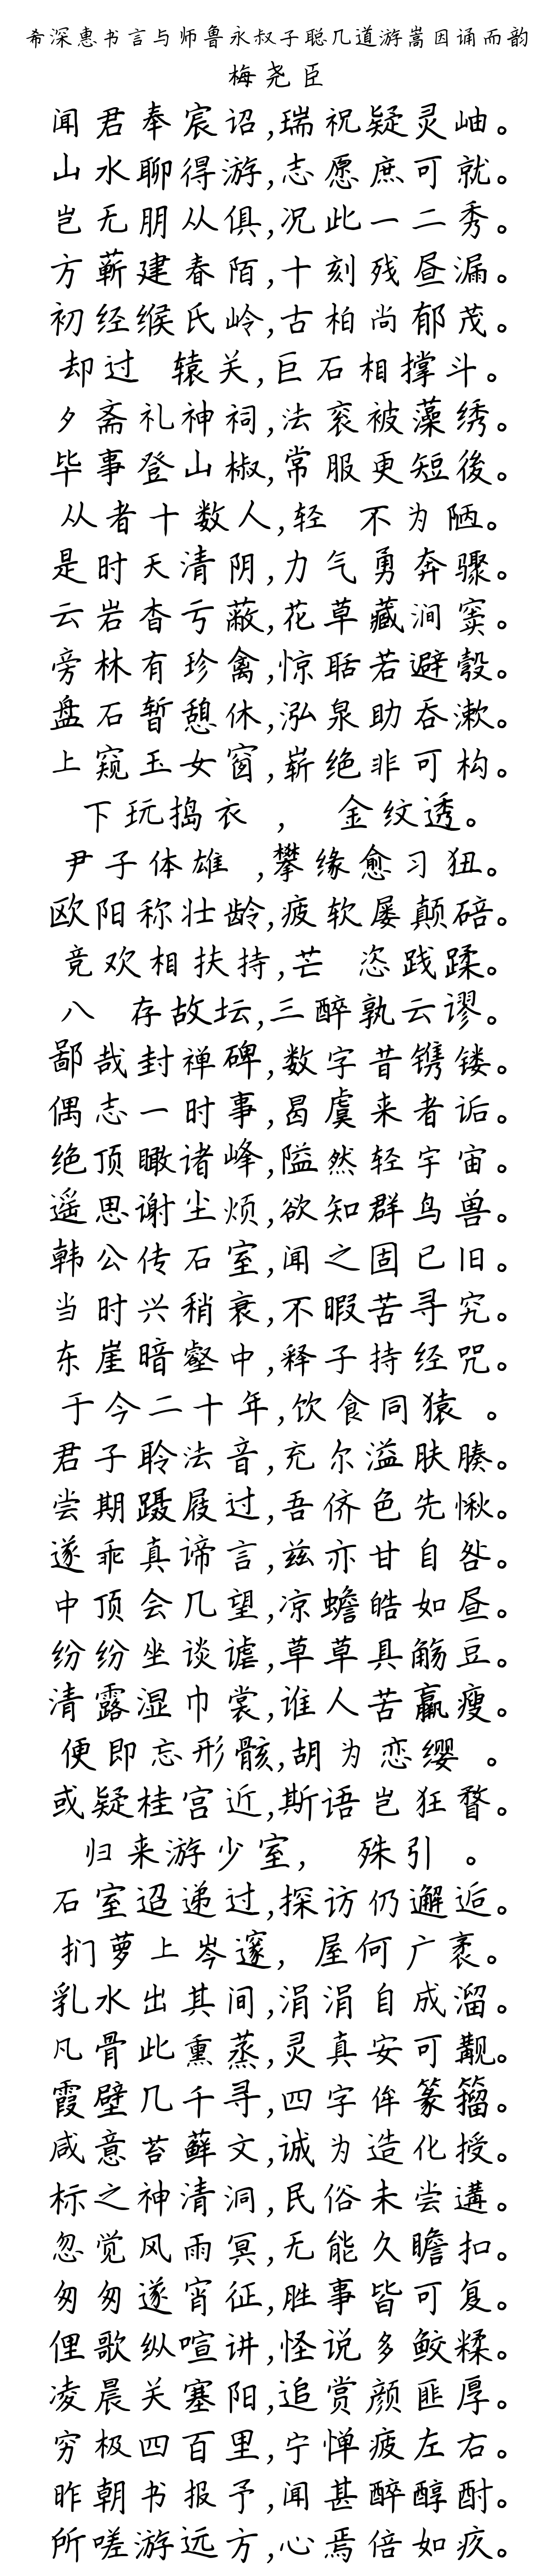 希深惠书言与师鲁永叔子聪几道游嵩因诵而韵
梅尧臣
闻君奉宸诏,瑞祝疑灵岫。
山水聊得游,志愿庶可就。
岂无朋从俱,况此一二秀。
方蕲建春陌,十刻残昼漏。
初经缑氏岭,古柏尚郁茂。
却过 辕关,巨石相撑斗。
夕斋礼神祠,法衮被藻绣。
毕事登山椒,常服更短後。
从者十数人,轻 不为陋。
是时天清阴,力气勇奔骤。
云岩杳亏蔽,花草藏涧窦。
旁林有珍禽,惊聒若避彀。
盘石暂憩休,泓泉助吞漱。
上窥玉女窗,崭绝非可构。
下玩捣衣 , 金纹透。
尹子体雄 ,攀缘愈习狃。
欧阳称壮龄,疲软屡颠踣。
竞欢相扶持,芒 恣践蹂。
八 存故坛,三醉孰云谬。
鄙哉封禅碑,数字昔镌镂。
偶志一时事,曷虞来者诟。
绝顶瞰诸峰,隘然轻宇宙。
遥思谢尘烦,欲知群鸟兽。
韩公传石室,闻之固已旧。
当时兴稍衰,不暇苦寻究。
东崖暗壑中,释子持经咒。
于今二十年,饮食同猿 。
君子聆法音,充尔溢肤腠。
尝期蹑屐过,吾侪色先愀。
遂乖真谛言,兹亦甘自咎。
中顶会几望,凉蟾皓如昼。
纷纷坐谈谑,草草具觞豆。
清露湿巾裳,谁人苦羸瘦。
便即忘形骸,胡为恋缨 。
或疑桂宫近,斯语岂狂瞀。
归来游少室, 殊引 。
石室迢递过,探访仍邂逅。
扪萝上岑邃, 屋何广袤。
乳水出其间,涓涓自成溜。
凡骨此熏蒸,灵真安可觏。
霞壁几千寻,四字侔篆籀。
咸意苔藓文,诚为造化授。
标之神清洞,民俗未尝遘。
忽觉风雨冥,无能久瞻扣。
匆匆遂宵征,胜事皆可复。
俚歌纵喧讲,怪说多鲛糅。
凌晨关塞阳,追赏颜匪厚。
穷极四百里,宁惮疲左右。
昨朝书报予,闻甚醉醇酎。
所嗟游远方,心焉倍如疚。